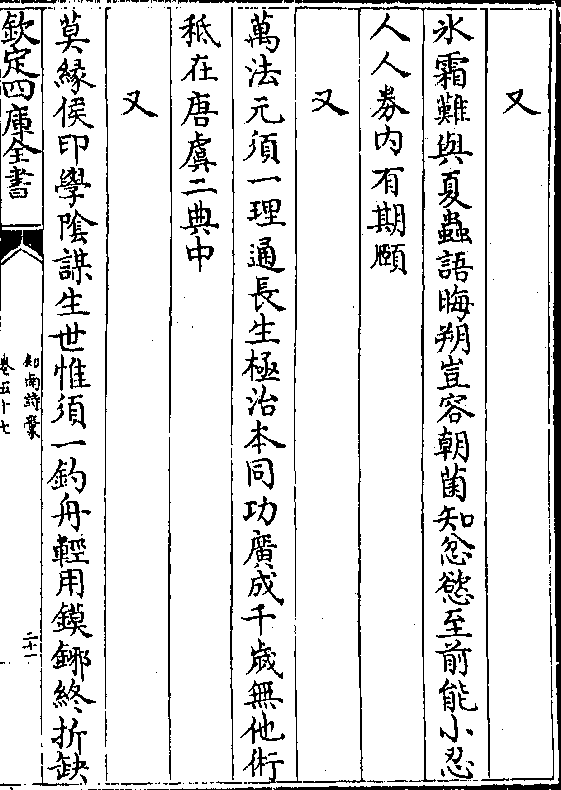 又
氷霜難與夏蟲語晦朔豈容朝菌知忿慾至前能小忍
人人劵内有期頤
又
萬法元須一理通長生極治本同功廣成千歳無他術
秪在唐虞二典中
又
莫縁侯印學陰謀生世惟須一釣舟輕用鏌鋣終折缺
欽定四庫全書
劒南詩藁
卷五十七
二十一